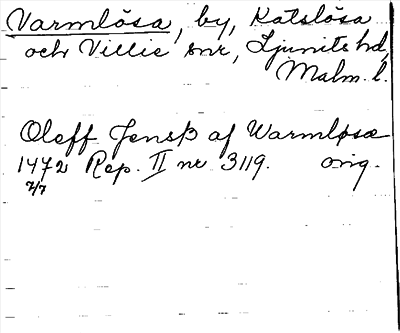 Varmlösa, by, Katslösa
och Villie snr, Ljunits hd,
Malm. l.
Oleff Jenß af Warmløsæ
1472 Rep. II nr 3119. orig.
2/7